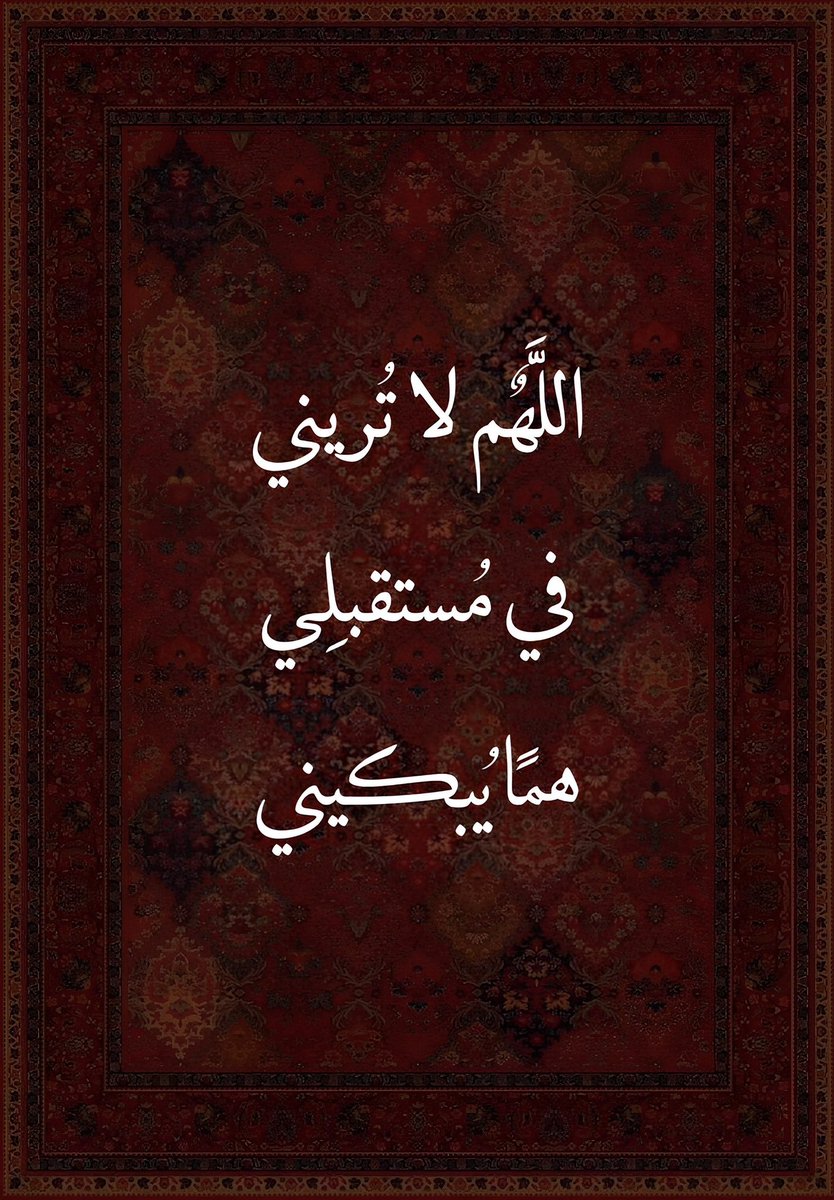 اللَّهُم لا تُريني
في مُستقبلِي
همًا يُبكيني